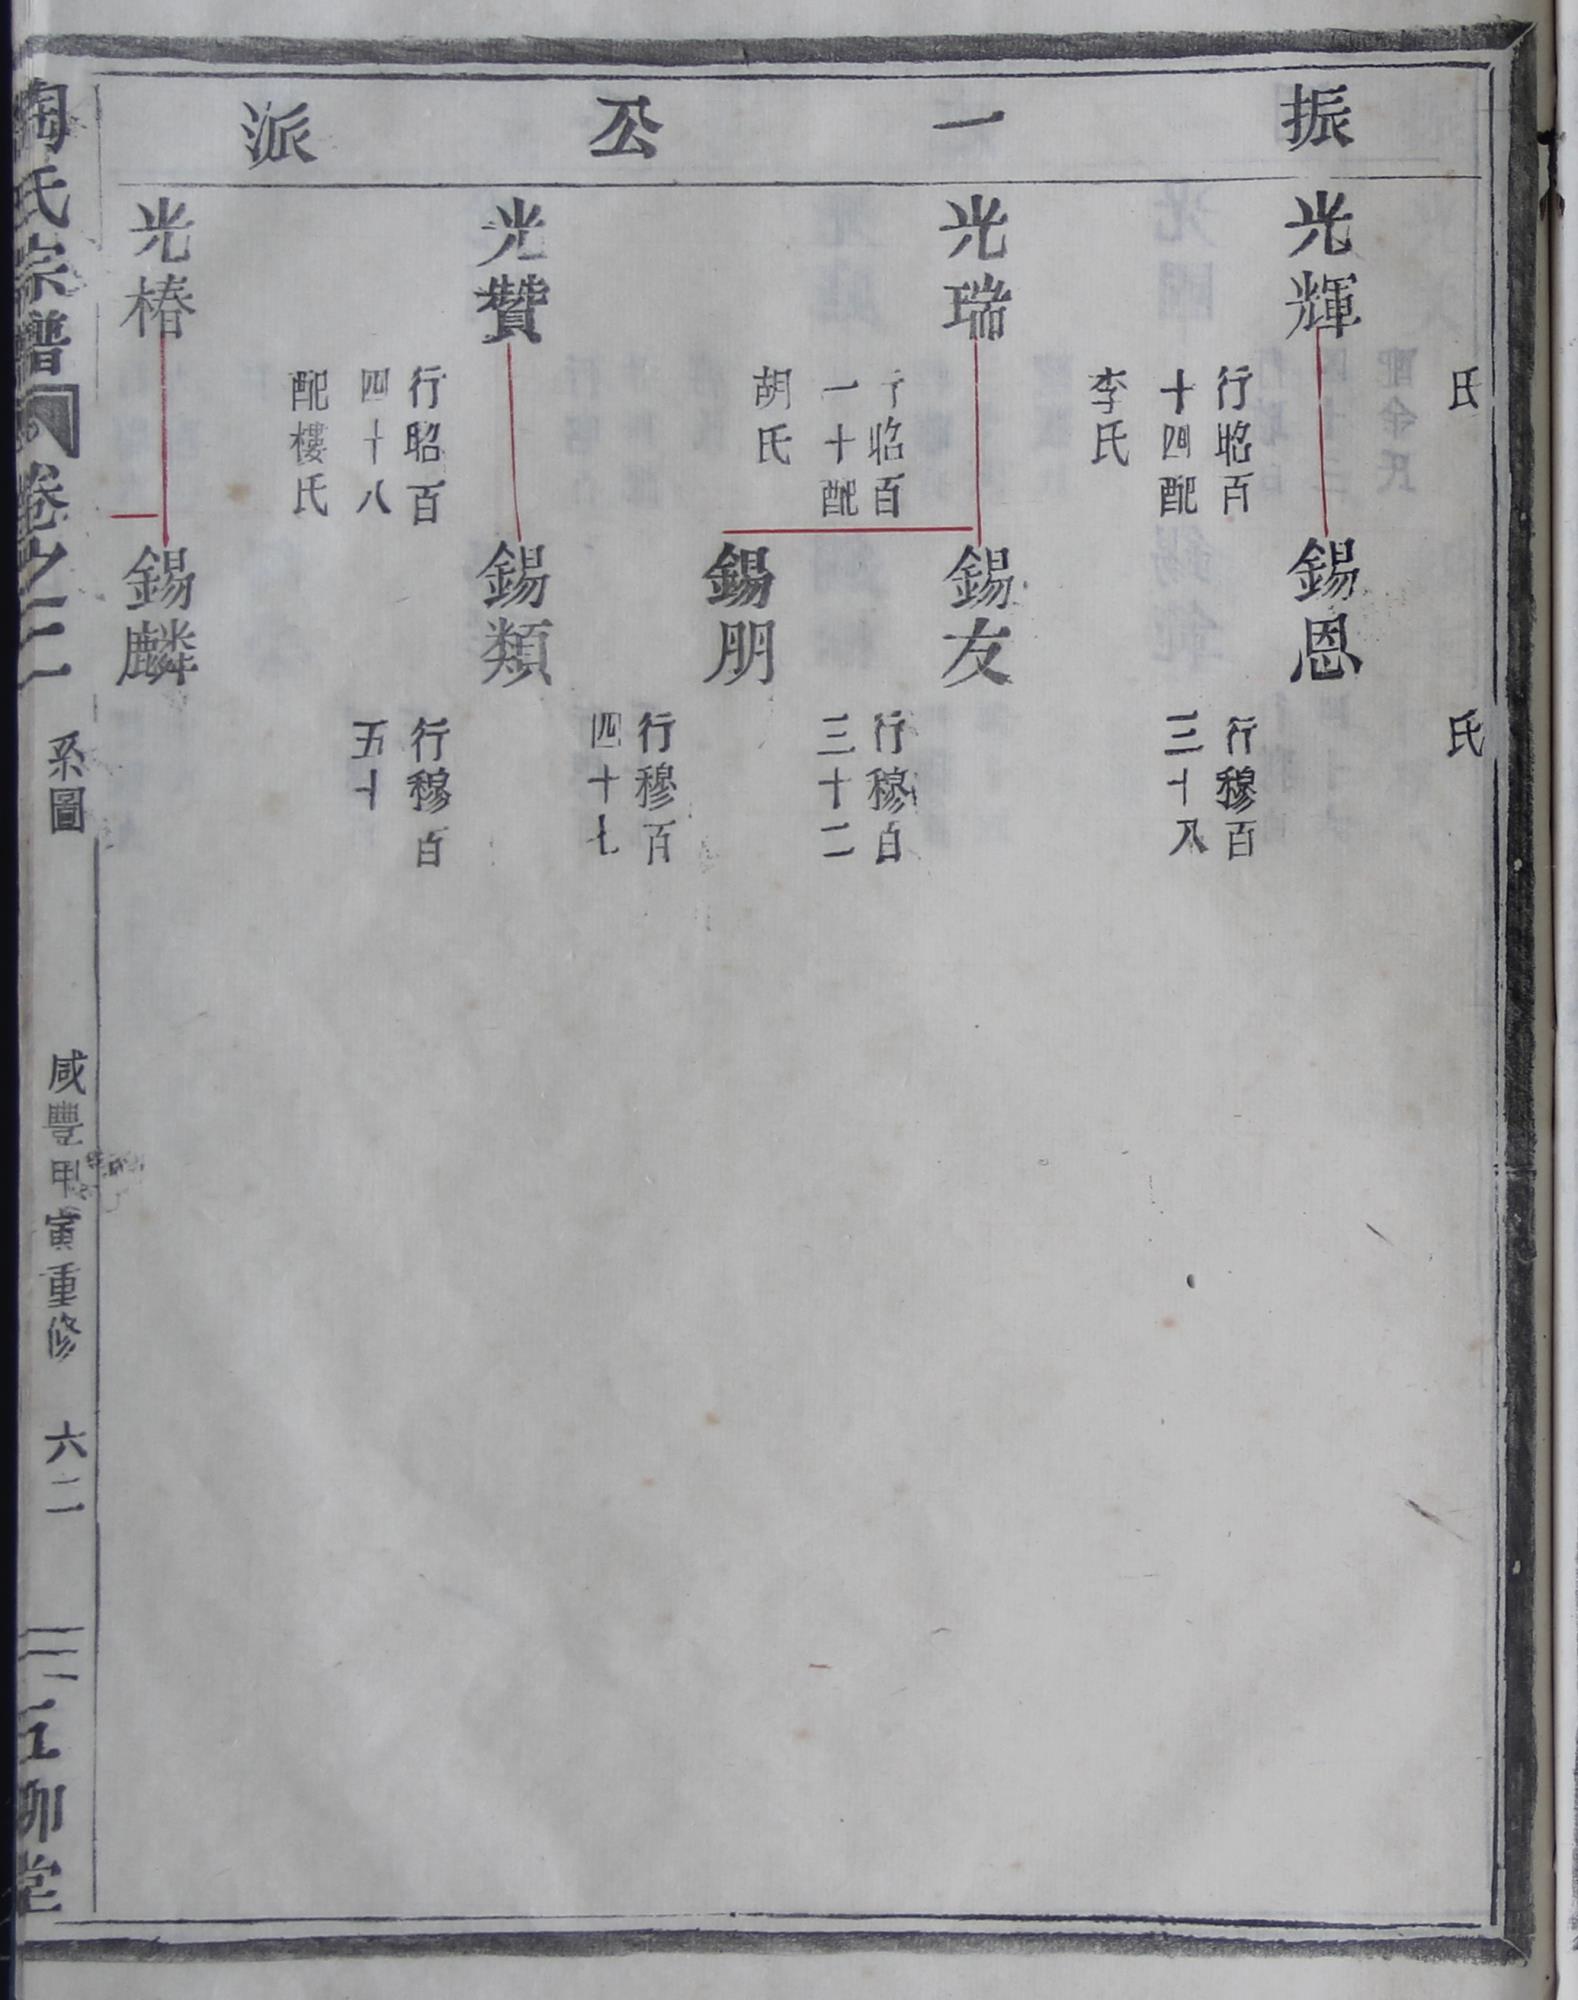 振一公派
氏
光輝
行昭百
十四配
李氏
光瑞
行昭百
一十配
胡氏
光贊
行昭百
四十八
配樓氏
光椿
氏
錫恩
行穆百
三十八
錫友
行穆百
三十二
錫朋
行穆百
四十七
錫類
行穆百
五十
錫麟
陶氏宗譜
卷之二
系圖
咸豐甲寅重修
六二
五柳堂